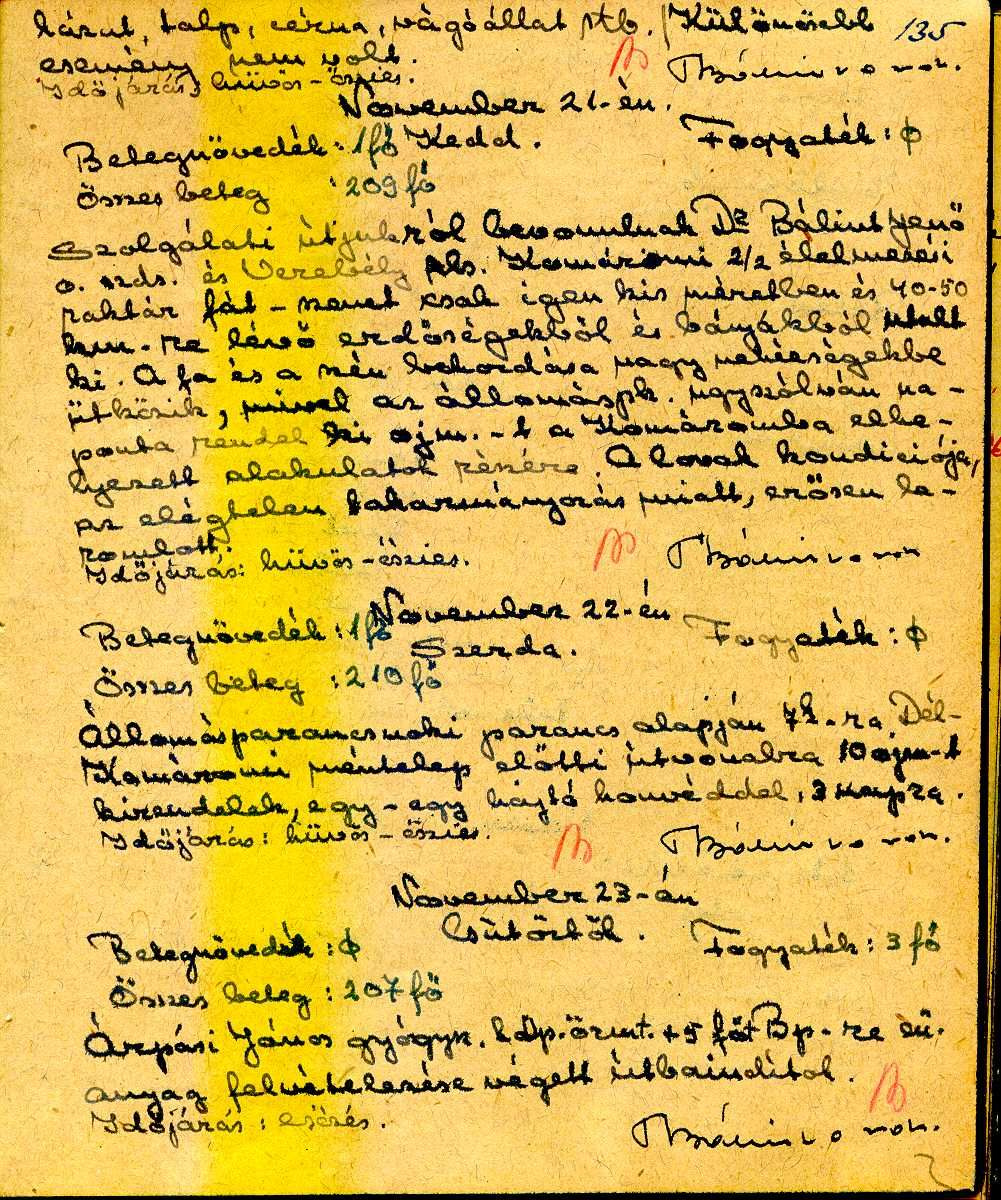 135
lázut, talp, cérna, vágóállat stb. Különösebb
esemény nem volt.
Időjárás: hüvös-őszies.
November 21-én.
Betegnövedék: 1 fő Kedd. Fogyaték: φ
Összes beteg : 209 fő
Szolgálati útjukról bevonulnak Dr Bálint Jenő
o. szds. és Verebély Komáromi 2/2 élelmezési
raktár fát-szenet csak igen kis méretben és 40-50
km.-re lévő erdőségekből és bányákból utalt
ki. A fa és a szén behordása nagy nehézségekbe
ütközik, mivel az állomáspk. ugyszólván na-
ponta rendel ki ojm.-t a Komáromba elhe-
lyezett alakulatok részére. A lovak kondiciója,
az elégtelen takarmányozás miatt, erősen le-
romlott.
Időjárás: hüvös-őszies.
November 22-én
Betegnövedék: 1 fő Szerda. Fogyaték: φ
Összes beteg : 210 fő
Állomásparancsnoki parancs alapján 7h-ra Dél-
Komáromi méntelep előtti útvonalra 10 ojm-t
kirendelek, egy-egy hajtó honvéddel, 3 napra.
Időjárás: hüvös-őszies.
November 23-án
Csütörtök.
Betegnövedék: φ Fogyaték: 3 fő
Összes beteg : 207 fő
Árpási János gyógyk. őrmt. + 5 főt Bp-re eü.
anyag felvételezése végett útbaindítok.
Időjárás: esőzés.